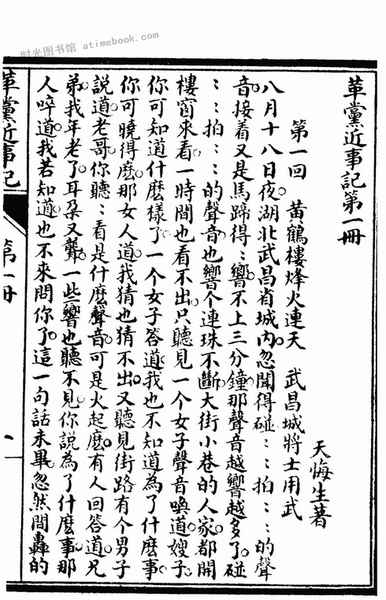 时光图书馆 atimebook.com
革黨近事記第一冊
天悔生著
第一回 黃鶴樓烽火連天 武昌城將士用武
八月十八日夜湖北武昌省城內忽聞得碰：：拍：：的聲
音接着又是馬蹄得：響不上三分鐘那聲音越響越多了碰
：：拍：：的聲音也響个連珠不斷大街小巷的人家都開
樓窗來看一時間也看不出只聽見一个女子聲音喚道嫂子
你可知道什麽樣了一个女子答道我也不知道為了什麽事
你可曉得麽那女人道我猜也猜不出又聽見街路有个男子
說道老哥你聽：看是什麽聲音可是火起麽有人回答道兄
弟我年老了耳朶又聾一些響也聽不見你說為了什麽事那
人啐道我若知道也不來問你了這一句話未畢忽然間轟的
革黨近事記
第一冊
一